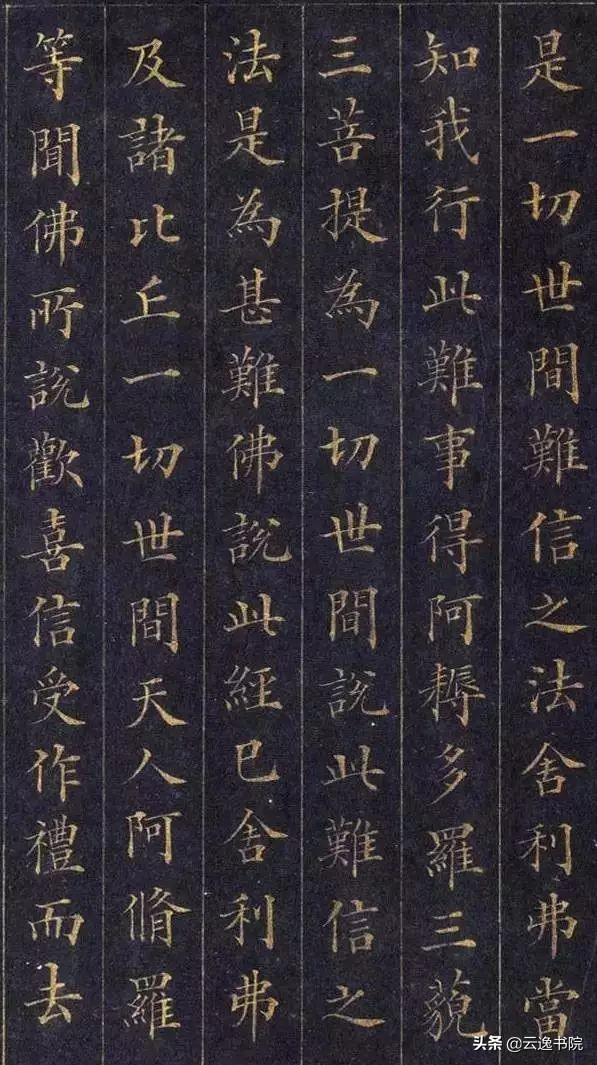 是一切世間難信之法舍利弗當
知我行此難事得阿耨多羅三藐
三菩提為一切世間說此難信之
法是為甚難佛說此經已舍利弗
及諸比丘一切世間天人阿脩羅
等聞佛所說歡喜信受作禮而去
头条 @云逸书院